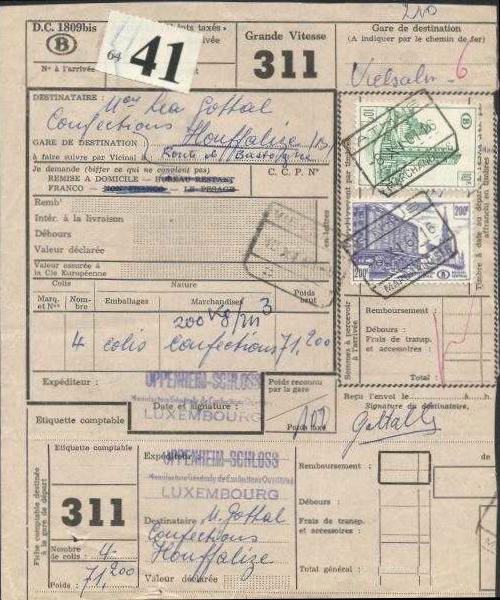 D.C. 1809bis
B
N° à l'arrivée
64
41
Grande Vitesse
311
Gare de destination
(A indiquer par le chemin de fer)
Vielsalm 6
DESTINATAIRE :
Gottal
Confections
GARE DE DESTINATION
Houffalize
à faire suivre par Vicinal à
Route de Bastogne
Je demande (biffer ce qui ne convient pas)
REMISE A DOMICILE — BUREAU RESTANT
FRANCO — NON FRANCO — LE PESAGE
C. C. P. N°
Remb'
Intér. à la livraison
Débours
Valeur déclarée
en lettres
Valeur assurée à
la Cie Européenne
Colis
Nature
Marq. et Nos
Nombre
Emballages
Marchandises
Poids brut
200 Kg/m3
4 colis Confections 71,200
200F
Timbre à date du départ
affranchi en timbres
Sommes à percevoir
à l'arrivée
Remboursement :
Débours :
Frais de transp.
et accessoires :
Total :
Expéditeur :
OPPENHEIM-SCHLOSS
Manufacture Générale de Confections Ouvrières
LUXEMBOURG
Date et signature :
Poids reconnu
par la gare
Poids taxé
Reçu l'envoi le
à
h
Signature du destinataire,
Etiquette comptable
Fiche comptable destinée
à la gare de départ
Etiquette comptable
311
Nombre
de colis : 4
Poids : 71,200
Expéditeur
OPPENHEIM-SCHLOSS
Manufacture Générale de Confections Ouvrières
LUXEMBOURG
Destinataire M. Gottal
Confections
Houffalize
Valeur déclarée
Remboursement :
Débours :
Frais de transp.
et accessoires :
Total général :
de